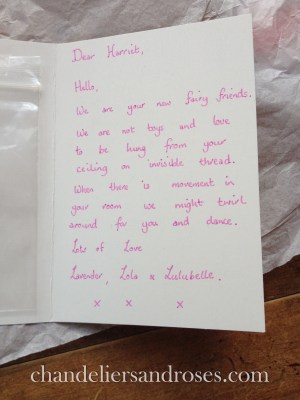 Dear Harriet,
Hello,
We are your new fairy friends.
We are not toys and love
to be hung from your
ceiling on invisible thread.
When there is movement in
your room we might twirl
around for you and dance.
Lots of Love
Lavender, Lola & Lulubelle.
x x x
chandeliersandroses.com